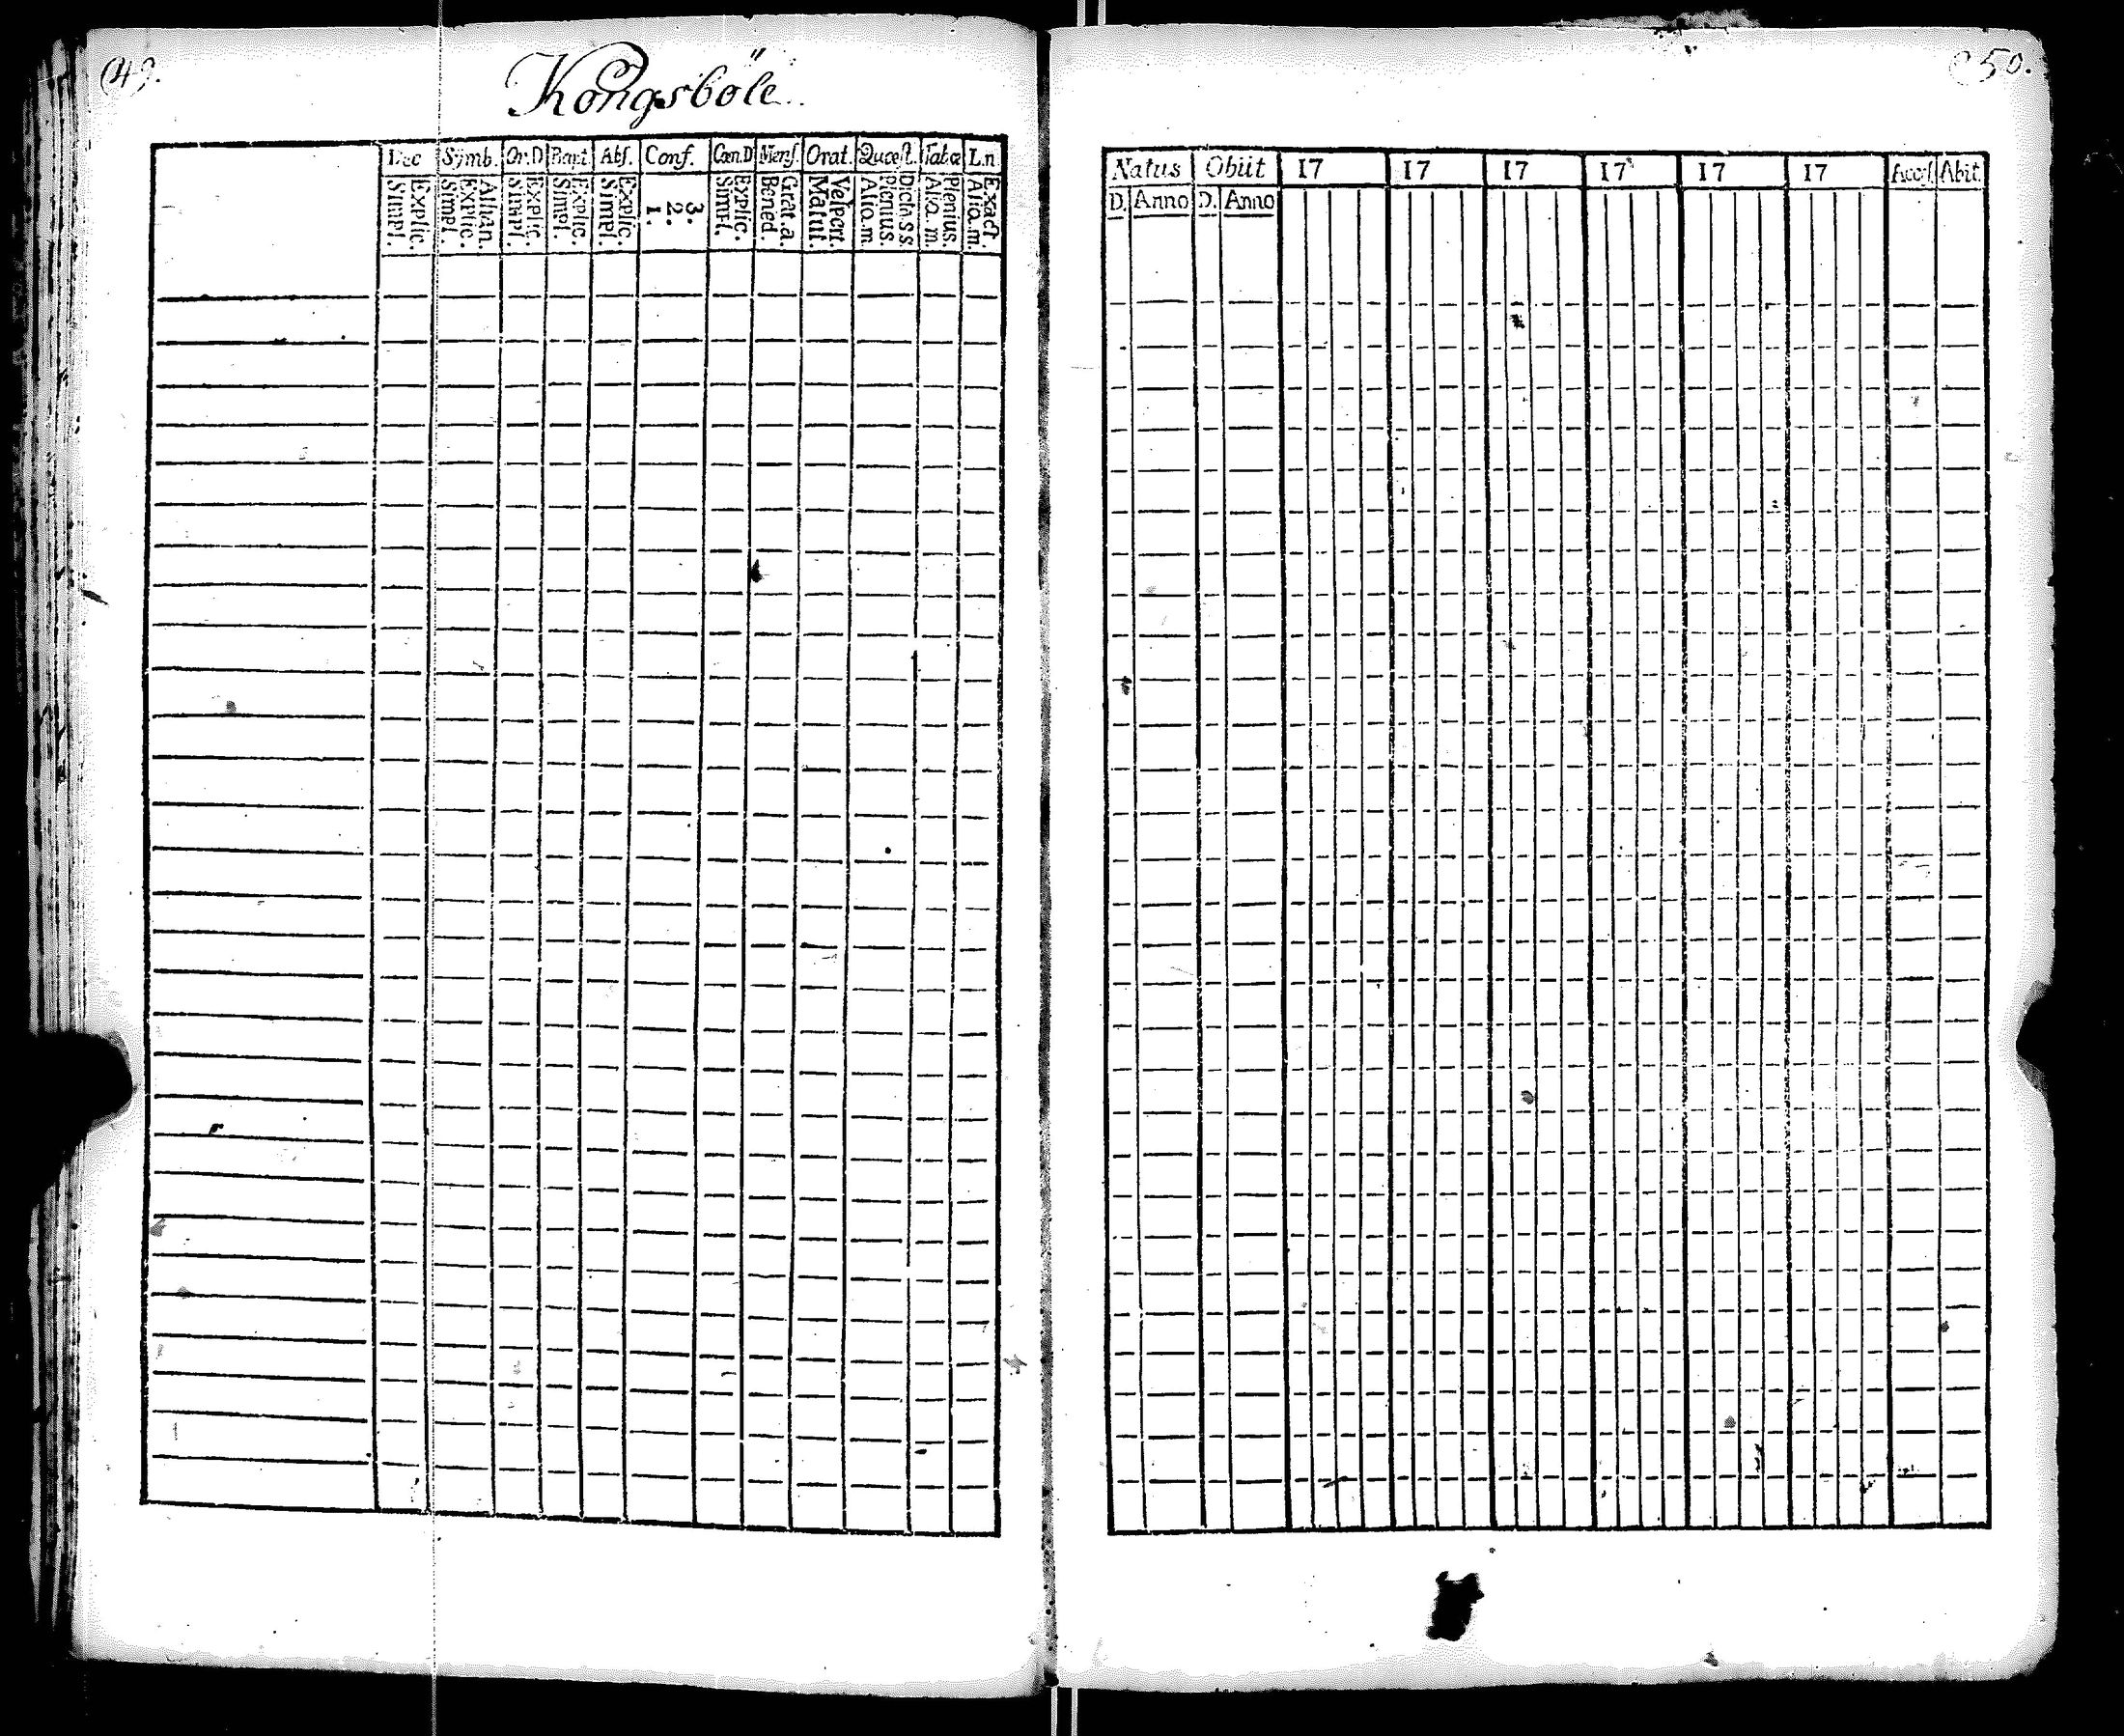 49.
Kongsböle
Dec Symb. Or.D Bapt. Abs. Conf. Cœn.D Mens. Orat. Quæst. Tab.œ L.n
Simpl. Explic. Simpl. Explic. Athan. Simpl. Explic. Simpl. Explic. Simpl. Explic. 1. 2. 3. Simpl. Explic. Bened. Grat.a. Matut. Vespert. Alio.m. Plenius. Dicta.s.s. Aliq.m. Plenius. Alio.m. Exact.
50.
Natus Obiit 17 17 17 17 17 17 Access. Abit.
D. Anno D. Anno